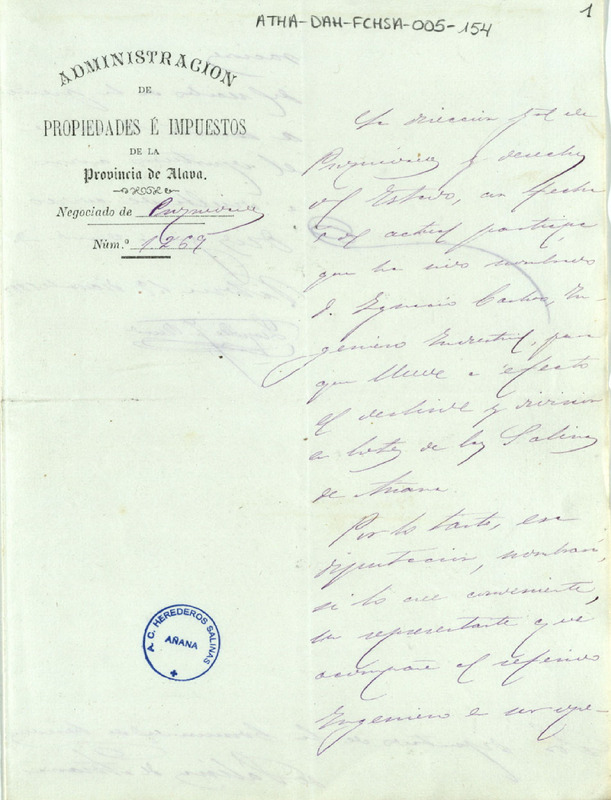 ATHA-DAH-FCHSA-005-154
1
ADMINISTRACION
DE
PROPIEDADES É IMPUESTOS
DE LA
Provincia de Alava.
Negociado de
Núm.º 1.269
La direccion gral de
Propiedades y derechos
del Estado, en fecha
del actual participa
que ha sido nombrado
D. Ignacio Carlos, In-
geniero Industrial, para
que lleve a efecto
el deslinde y division
en lotes de las Salinas
de Añana.
Por lo tanto, esa
diputacion, nombrará,
si lo cree conveniente,
un representante que
acompañe al referido
Ingeniero
A. C. HEREDEROS SALINAS
AÑANA